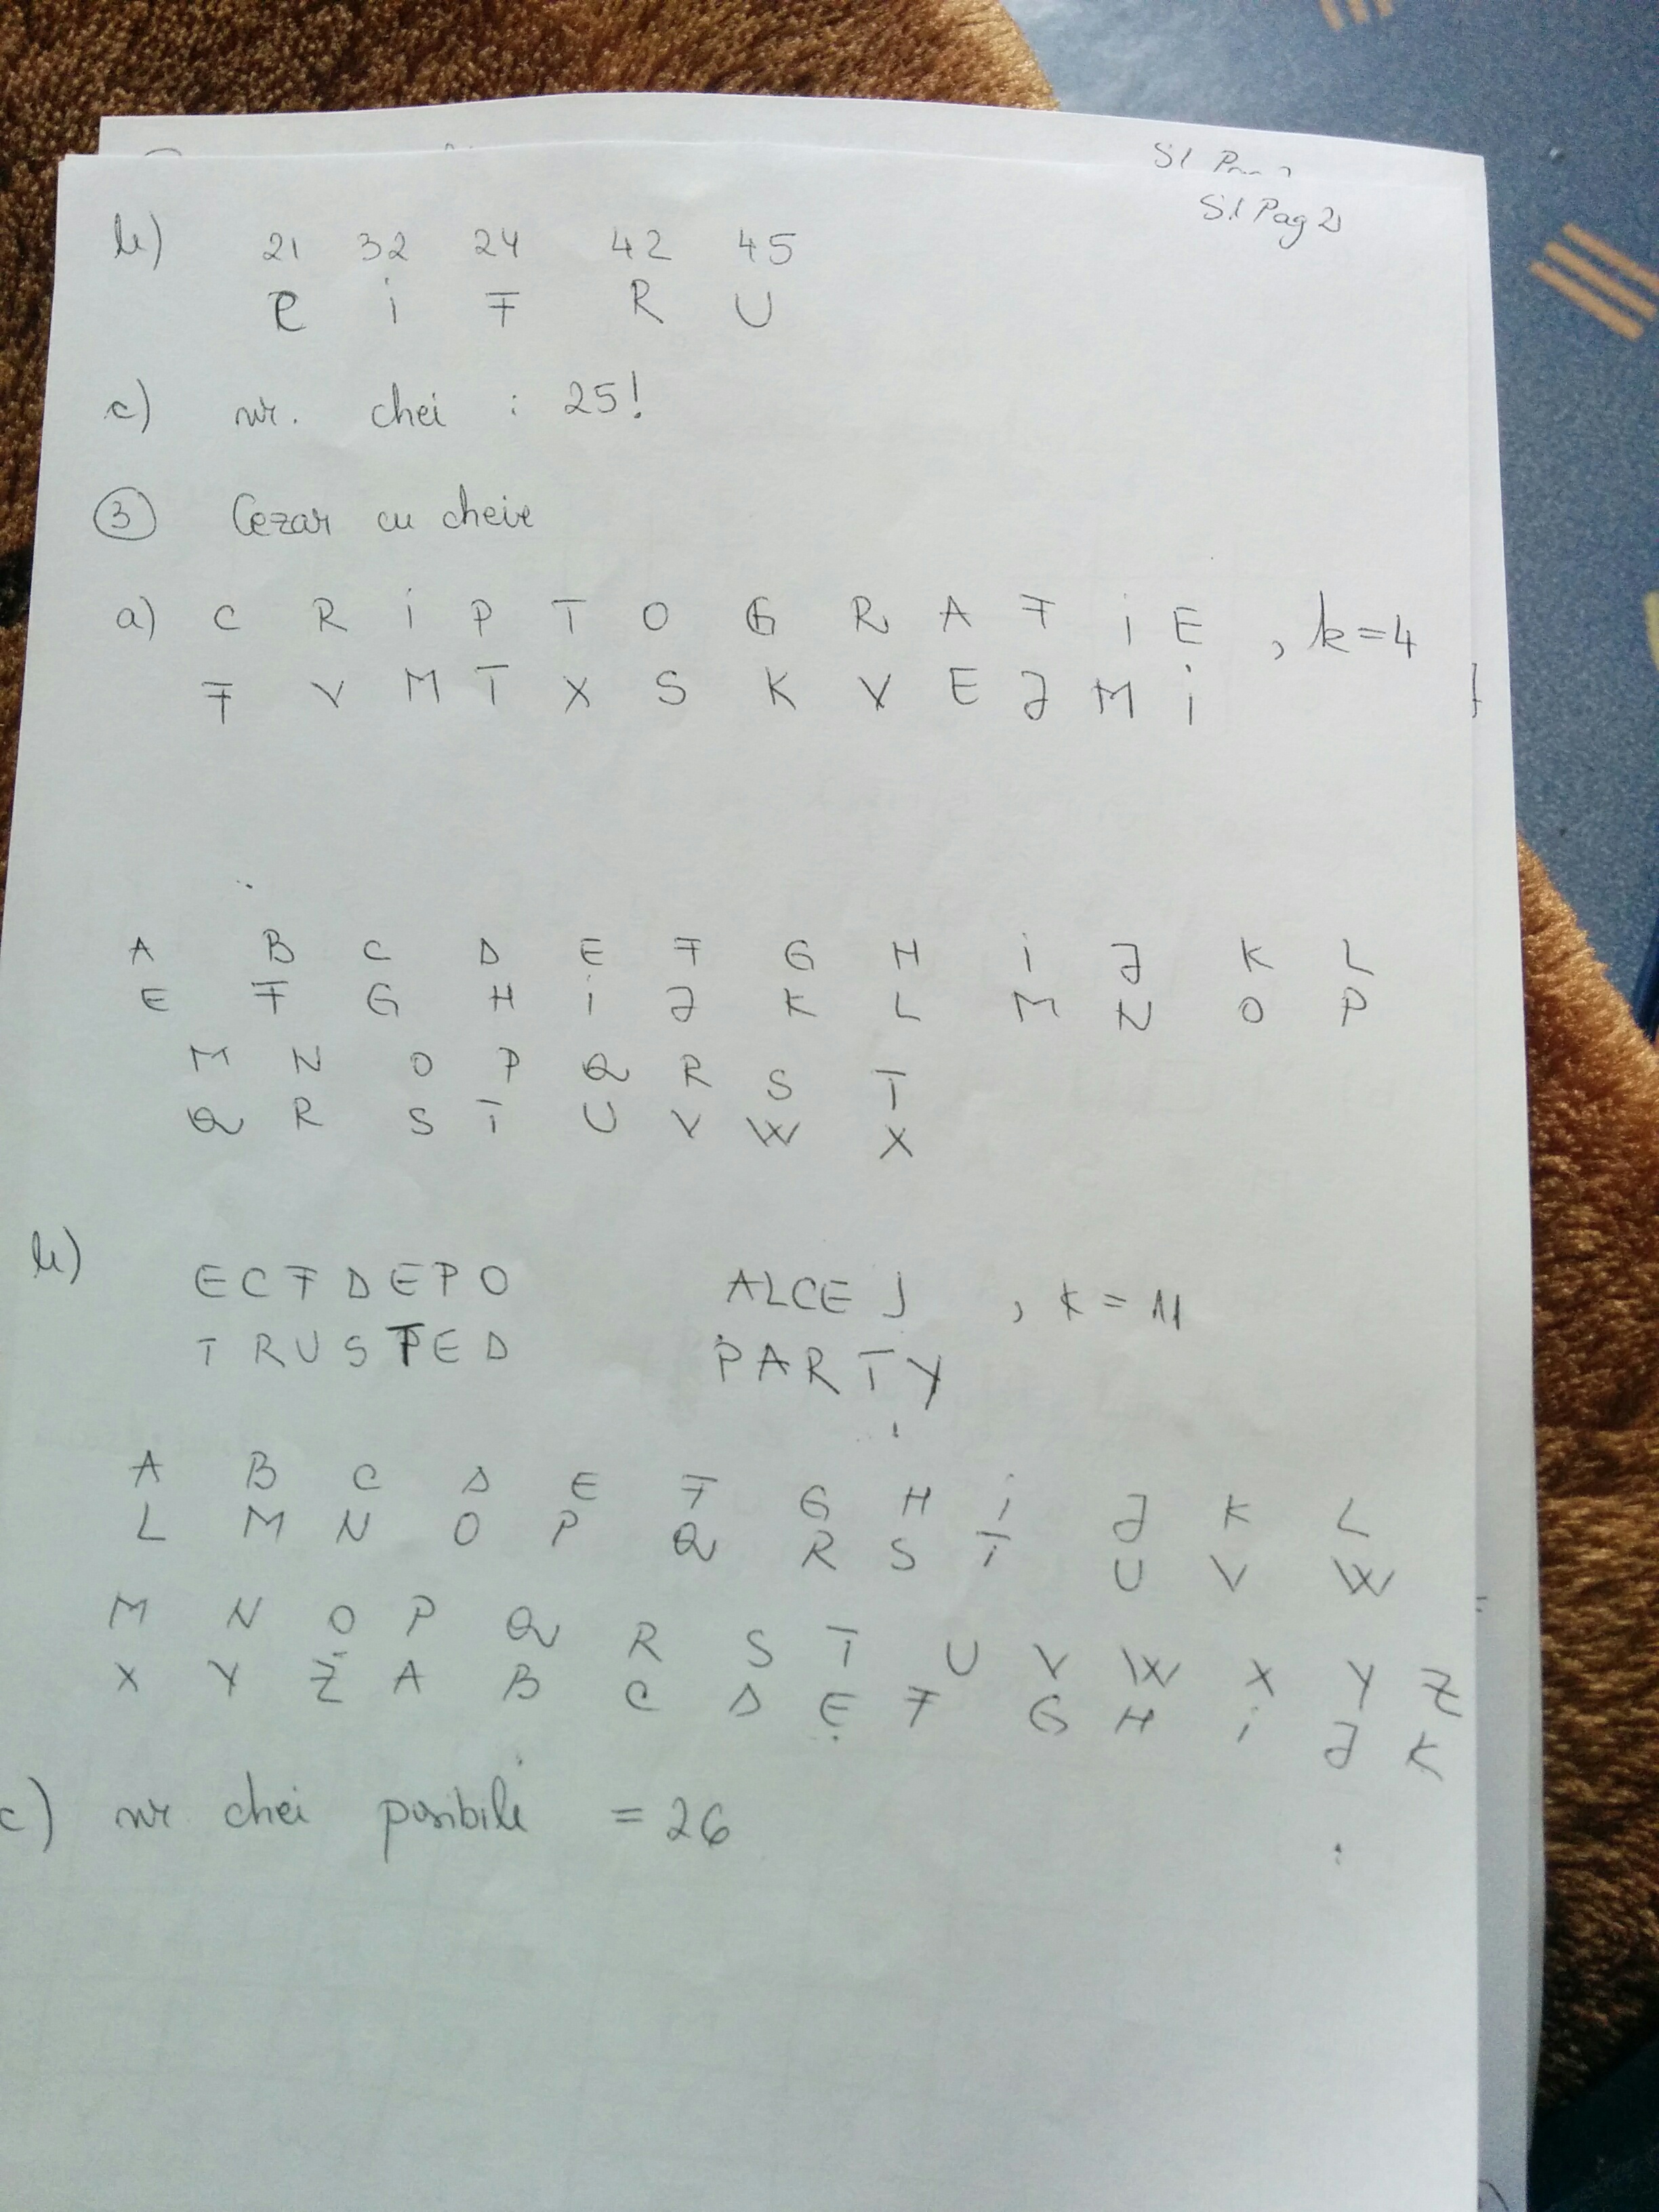 S1 Pag 2
b) 21 32 24 42 45
C i F R U
c) nr. chei : 25!
③ Cezar cu cheie
a) C R i P T O G R A F i E , k=4
F V M T X S K V E J M i
A B C D E F G H i J K L
E F G H i J K L M N O P
M N O P Q R S T
Q R S T U V W X
b) ECFDEPO ALCEJ , k=11
TRUSTED PARTY
A B C D E F G H i J K L
L M N O P Q R S T U V W
M N O P Q R S T U V W X Y Z
X Y Z A B C D E F G H i J K
c) nr chei posibile = 26